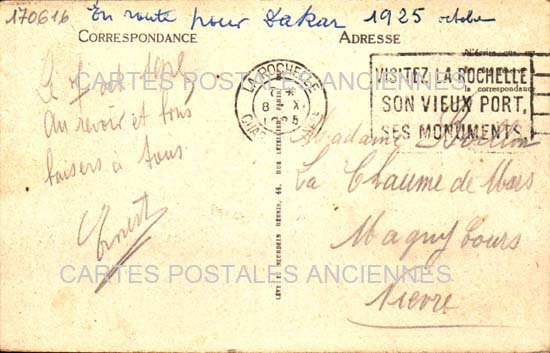 170616 En route pour Dakar 1925 octobre
CORRESPONDANCE
ADRESSE
LA ROCHELLE
8 X
VISITEZ LA ROCHELLE
SON VIEUX PORT,
SES MONUMENTS.
la correspondance
CARTES POSTALES ANCIENNES
Le
Au revoir et bons
baisers à tous
Ernest
Madame
La Chaume de Mars
Magny Cours
Nièvre
LÉVY & NEURDEIN RÉUNIS, 44, RUE LETELLIER, PARIS
CARTES POSTALES ANCIENNES